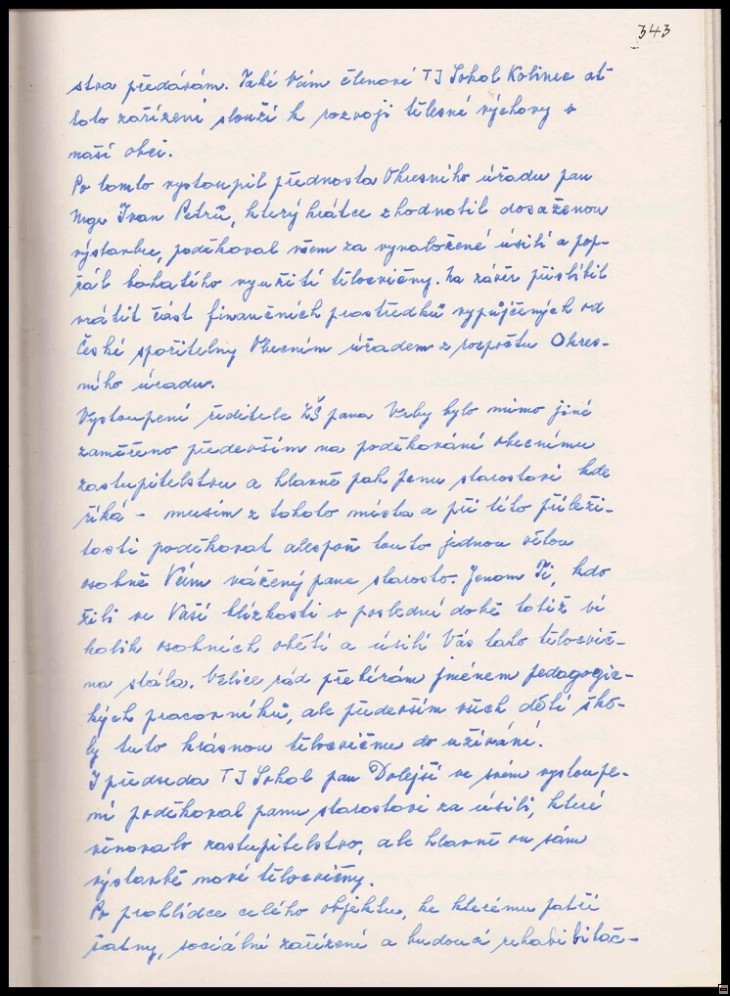 343
stva předávám. Také Vám členové TJ Sokol Kolinec ať
toto zařízení slouží k rozvoji tělesné výchovy v
naší obci.
Po tomto vystoupil přednosta Okresního úřadu pan
Mgr Ivan Petrů, který krátce zhodnotil dosaženou
výstavbu, poděkoval všem za vynaložené úsilí a pop-
řál bohatého využití tělocvičny. Na závěr přislíbil
vrátit část finančních prostředků vypůjčených od
České spořitelny Obecním úřadem z rozpočtu Okres-
ního úradu.
Vystoupení ředitele ZŠ pana Vrby bylo mimo jiné
zaměřeno především na poděkování obecnímu
zastupitelstvu a hlavně pak panu starostovi kde
říká - musím z tohoto místa a při této příleži-
tosti poděkovat alespoň touto jednou větou
osobně Vám vážený pane starosto. Jenom Ti, kdo
žili ve Vaší blízkosti v poslední době totiž ví
kolik osobních obětí a úsilí Vás tato tělocvič-
na stála. Velice rád přebírám jménem pedagogic-
kých pracovníků, ale především všech dětí ško-
ly tuto krásnou tělocvičnu do užívání.
I předseda TJ Sokol pan Dolejší ve svém vystoupe-
ní poděkoval panu starostovi za úsilí, které
věnovalo zastupitelstvo, ale hlavně on sám
výstavbě nové tělocvičny.
Po prohlídce celého objektu, ke kterému patří
šatny, sociální zařízení a budoucí rehabilitač-